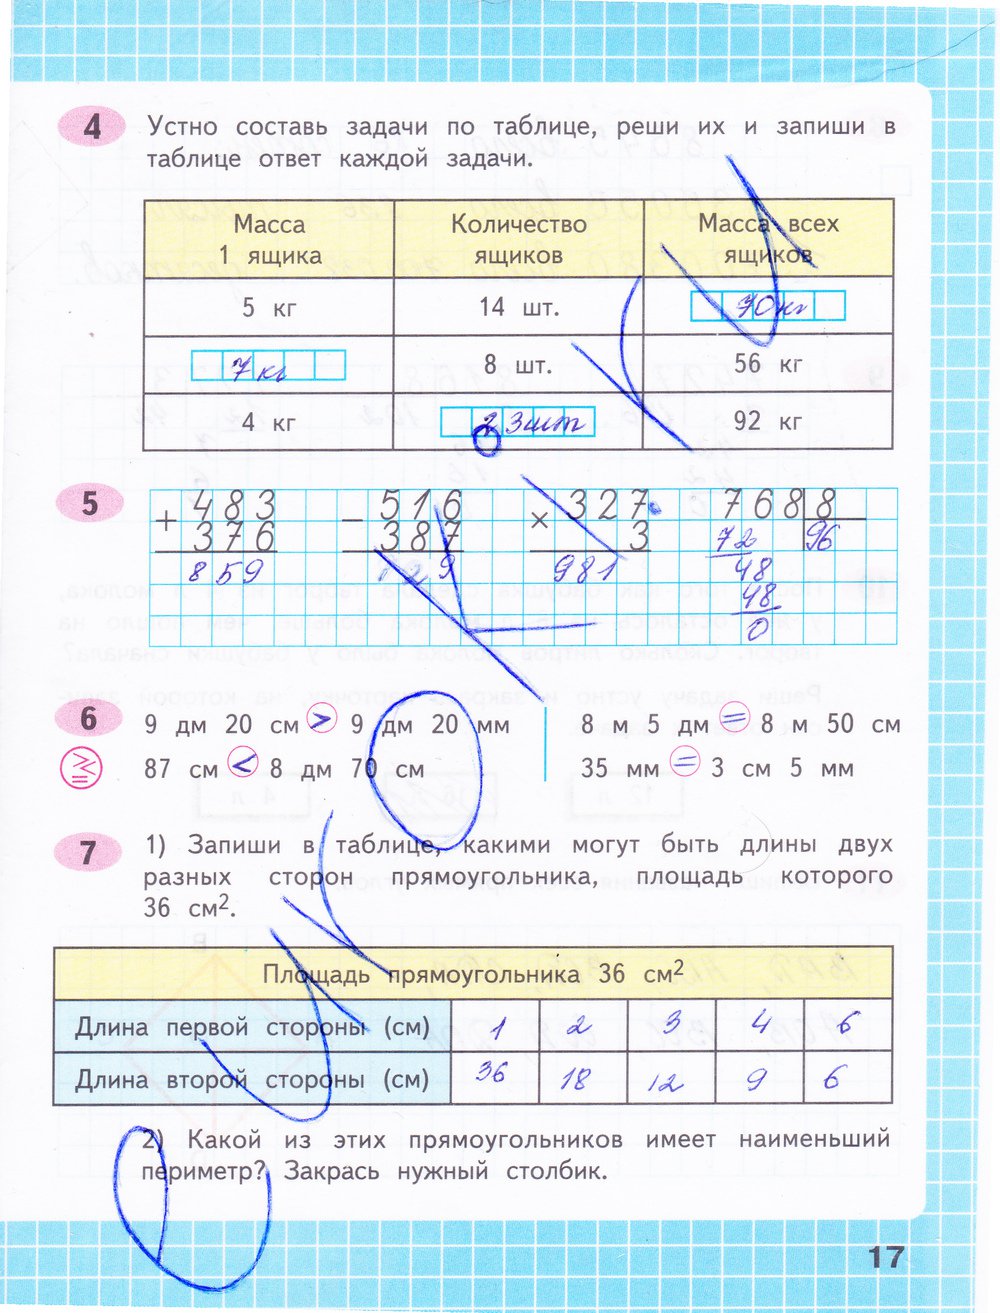 4 Устно составь задачи по таблице, реши их и запиши в
таблице ответ каждой задачи.
Масса 1 ящика Количество ящиков Масса всех ящиков
5 кг 14 шт. 70 кг
7 кг 8 шт. 56 кг
4 кг 23 шт 92 кг
5
+ 483 − 516 × 327 768 8
376 387 3 72 96
859 129 981 48
48
0
6 9 дм 20 см > 9 дм 20 мм 8 м 5 дм = 8 м 50 см
87 см < 8 дм 70 см 35 мм = 3 см 5 мм
7 1) Запиши в таблице, какими могут быть длины двух
разных сторон прямоугольника, площадь которого
36 см².
Площадь прямоугольника 36 см²
Длина первой стороны (см) 1 2 3 4 6
Длина второй стороны (см) 36 18 12 9 6
2) Какой из этих прямоугольников имеет наименьший
периметр? Закрась нужный столбик.
17